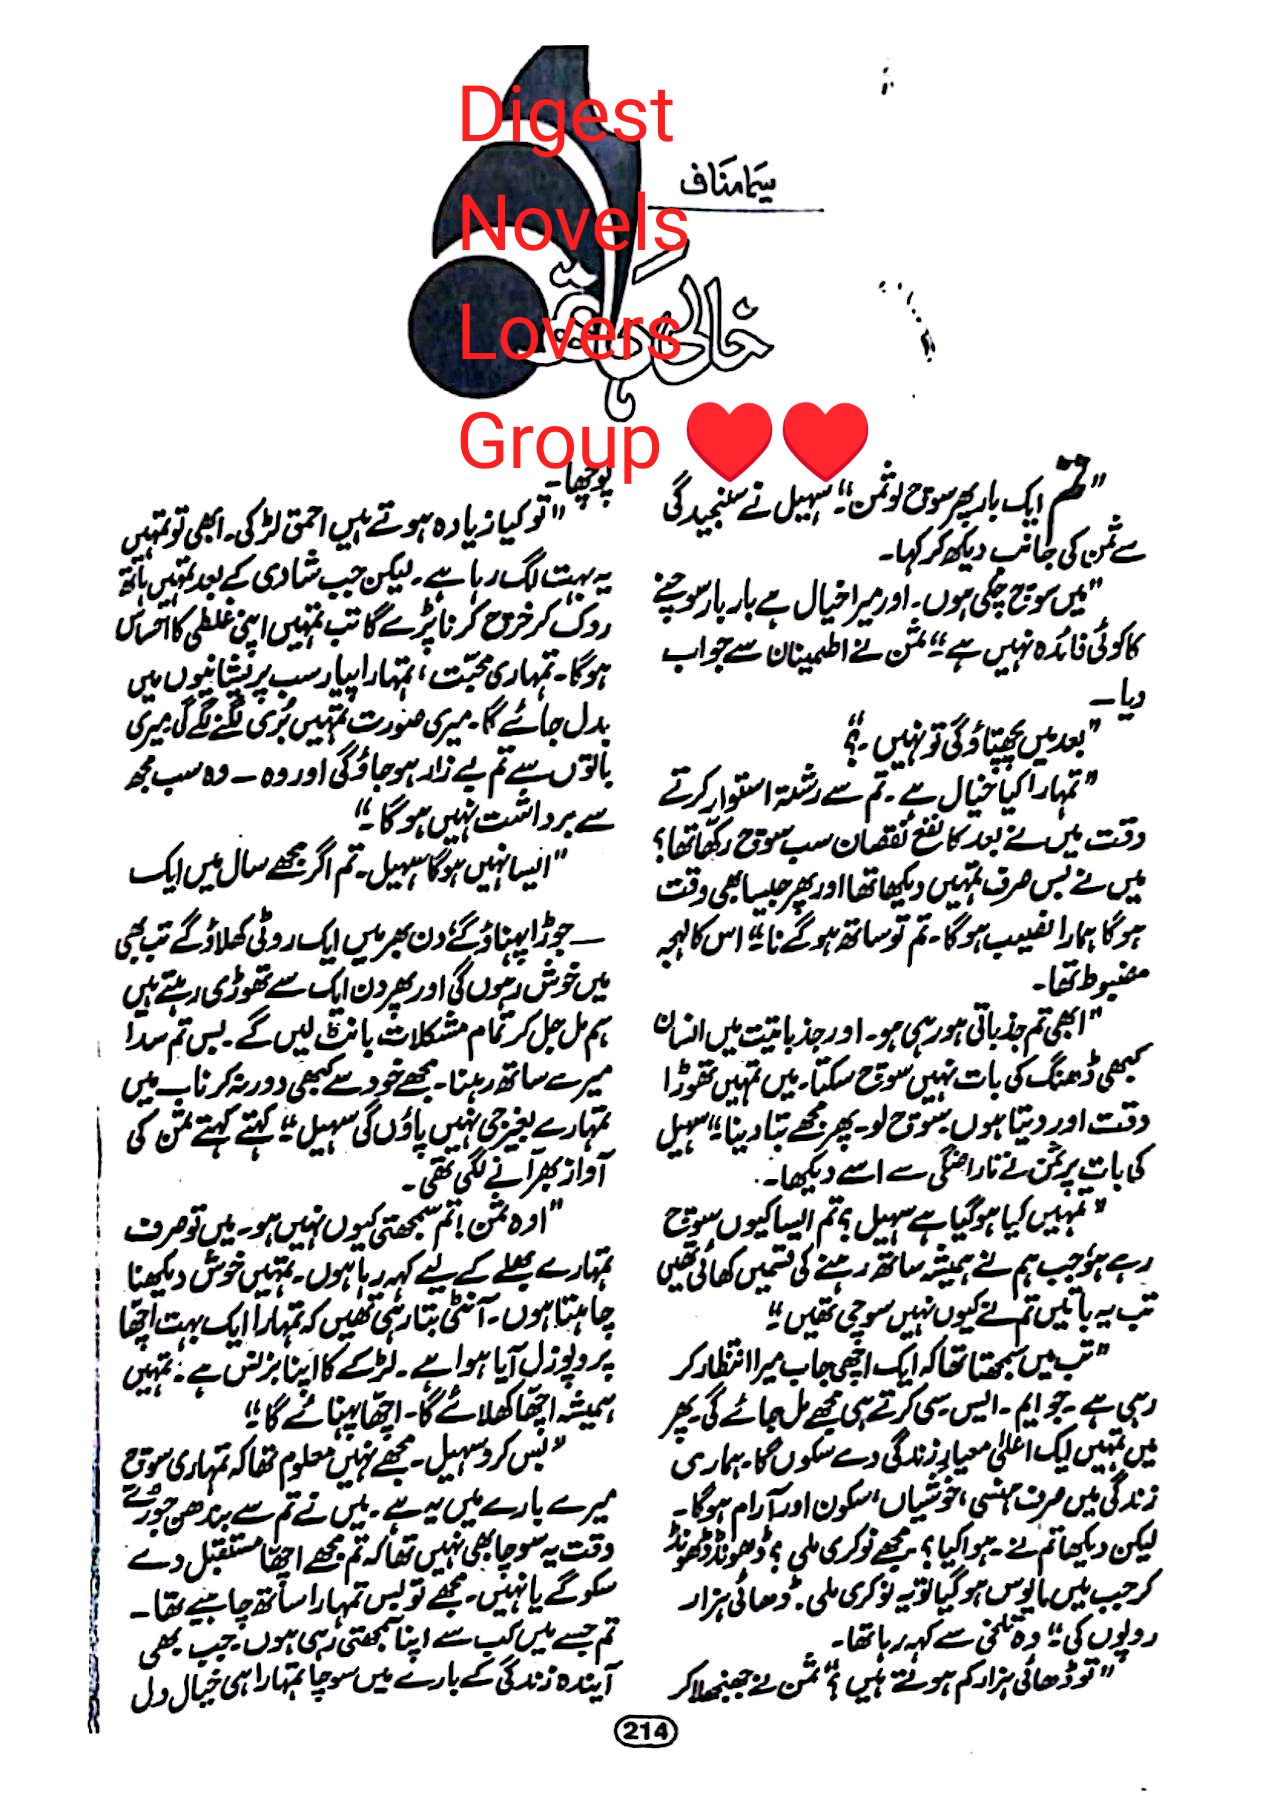 Digest
Novels
Lovers
Group ❤❤
سیما مناف
خالی ہاتھ
"تم ایک بار پھر سوچ لو ثمن۔" سہیل نے سنجیدگی
سے ثمن کی جانب دیکھ کر کہا۔
"میں سوچ چکی ہوں۔ اور میرا خیال ہے بار بار سوچنے
کا کوئی فائدہ نہیں ہے۔" ثمن نے اطمینان سے جواب
دیا۔
"بعد میں پچھتاؤ گی تو نہیں۔؟"
"تمہارا کیا خیال ہے۔ تم سے رشتہ استوار کرتے
وقت میں نے بعد کا نفع نقصان سب سوچ رکھا تھا؟
میں نے بس صرف تمہیں دیکھا تھا اور پھر جیسا بھی وقت
ہو گا ہمارا نصیب ہو گا۔ تم تو ساتھ ہو گے نا۔" اس کا لہجہ
مضبوط تھا۔
"ابھی تم جذباتی ہو رہی ہو۔ اور جذباتیت میں انسان
کبھی ڈھنگ کی بات نہیں سوچ سکتا۔ میں تمہیں تھوڑا
وقت اور دیتا ہوں۔ سوچ لو۔ پھر مجھے بتا دینا۔" سہیل
کی بات پر ثمن نے ناراضگی سے اسے دیکھا۔
"تمہیں کیا ہو گیا ہے سہیل؟ تم ایسا کیوں سوچ
رہے ہو، جب ہم نے ہمیشہ ساتھ رہنے کی قسمیں کھائی تھیں
تب یہ باتیں تم نے کیوں نہیں سوچی تھیں۔"
"تب میں سمجھتا تھا کہ ایک اچھی جاب میرا انتظار کر
رہی ہے۔ جو ایم۔ ایس سی کرتے ہی مجھے مل جائے گی۔ پھر
میں تمہیں ایک اعلیٰ معیار زندگی دے سکوں گا۔ ہماری
زندگی میں صرف ہنسی، خوشیاں، سکون اور آرام ہو گا۔
لیکن دیکھا تم نے۔ ہوا کیا؟ مجھے نوکری ملی؟ ڈھونڈ ڈھونڈ
کر جب میں مایوس ہو گیا تو یہ نوکری ملی۔ ڈھائی ہزار
روپوں کی۔" وہ تلخی سے کہہ رہا تھا۔
"تو ڈھائی ہزار کم ہوتے ہیں؟" ثمن نے جھنجھلا کر
پوچھا۔
"تو کیا زیادہ ہوتے ہیں احمق لڑکی۔ ابھی تو تمہیں
یہ بہت لگ رہا ہے۔ لیکن جب شادی کے بعد تمہیں ہاتھ
روک کر خرچ کرنا پڑے گا تب تمہیں اپنی غلطی کا احساس
ہو گا۔ تمہاری محبت، تمہارا پیار سب پریشانیوں میں
بدل جائے گا۔ میری صورت تمہیں بُری لگنے لگے گی۔ میری
باتوں سے تم بے زار ہو جاؤ گی اور وہ ــ وہ سب مجھ
سے برداشت نہیں ہو گا۔"
"ایسا نہیں ہو گا سہیل۔ تم اگر مجھے سال میں ایک
ــ جوڑا پہناؤ گے، دن بھر میں ایک روٹی کھلاؤ گے تب بھی
میں خوش رہوں گی اور پھر دن ایک سے تھوڑی رہتے ہیں
ہم مل جل کر تمام مشکلات بانٹ لیں گے۔ بس تم سدا
میرے ساتھ رہنا۔ مجھے خود سے کبھی دور نہ کرنا۔ اب میں
تمہارے بغیر جی نہیں پاؤں گی سہیل۔" کہتے کہتے ثمن کی
آواز بھرآنے لگی تھی۔
"اوہ ثمن! تم سمجھتی کیوں نہیں ہو۔ میں تو صرف
تمہارے بھلے کے لیے کہہ رہا ہوں۔ تمہیں خوش دیکھنا
چاہتا ہوں۔ آنٹی بتا رہی تھیں کہ تمہارا ایک بہت اچھا
پروپوزل آیا ہوا ہے۔ لڑکے کا اپنا بزنس ہے۔ تمہیں
ہمیشہ اچھا کھلائے گا۔ اچھا پہنائے گا۔"
"بس کرو سہیل۔ مجھے نہیں معلوم تھا کہ تمہاری سوچ
میرے بارے میں یہ ہے۔ میں نے تم سے بندھن جوڑتے
وقت یہ سوچا بھی نہیں تھا کہ تم مجھے اچھا مستقبل دے
سکو گے یا نہیں۔ مجھے تو بس تمہارا ساتھ چاہیے تھا۔
تم جسے میں کب سے اپنا سمجھتی رہی ہوں۔ جب بھی
آیندہ زندگی کے بارے میں سوچا تمہارا ہی خیال دل
214